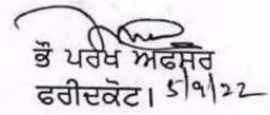 ਭੌਂ ਪਰਖ ਅਫਸਰ
ਫਰੀਦਕੋਟ। 5/9/22